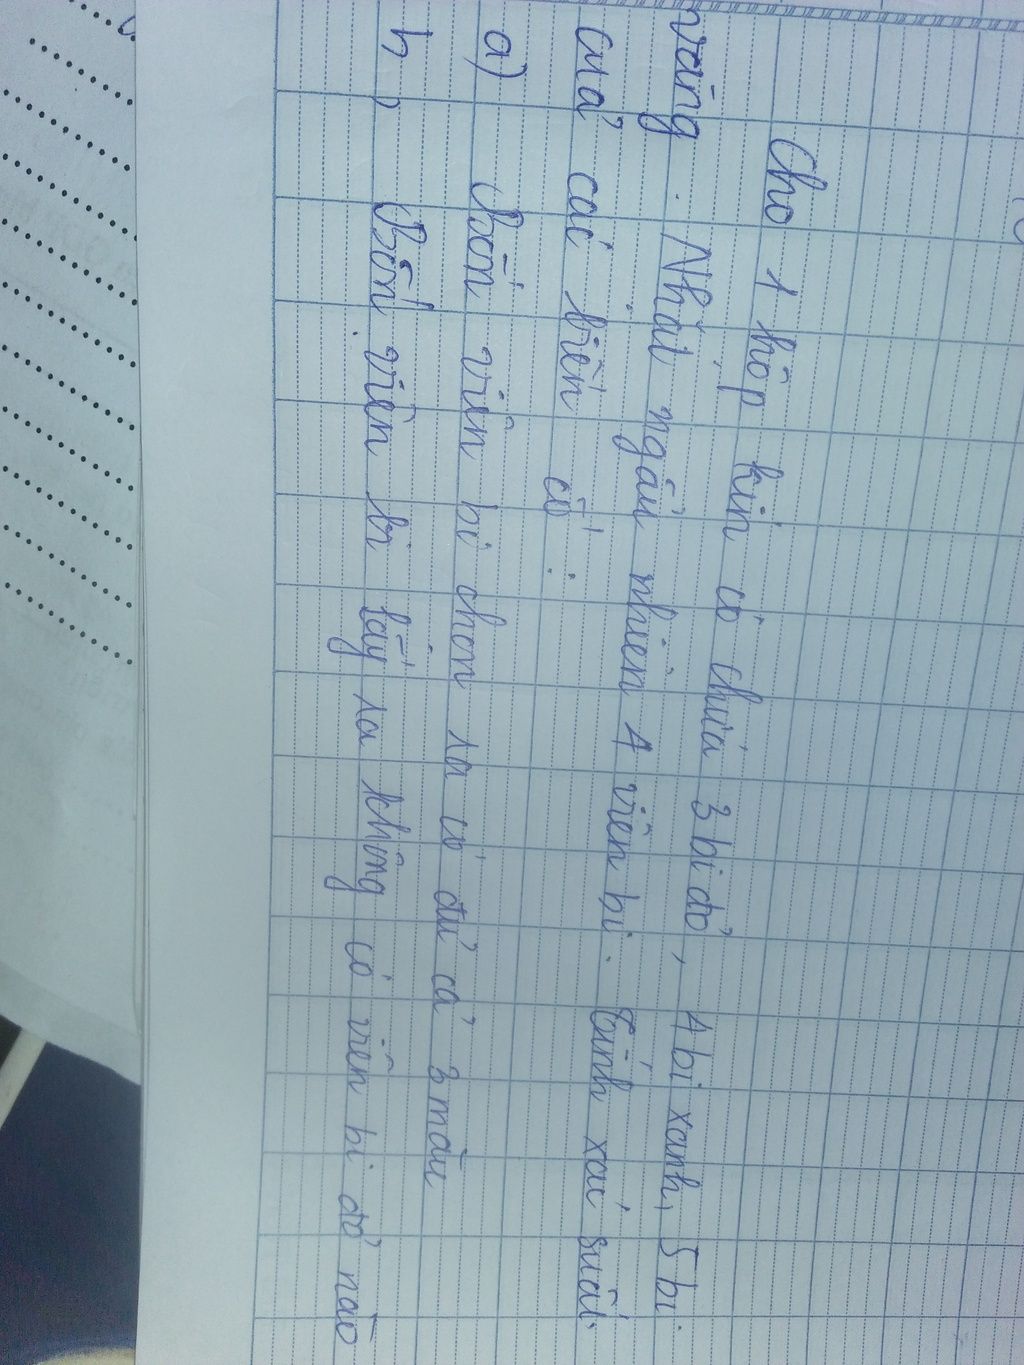 Cho 1 hộp kín có chứa 3 bi đỏ, 4 bi xanh, 5 bi
vàng. Nhặt ngẫu nhiên 4 viên bi. Tính xác suất
của các biến cố:
a) Bốn viên bi chọn ra có đủ cả 3 màu
b) Bốn viên bi lấy ra không có viên bi đỏ nào